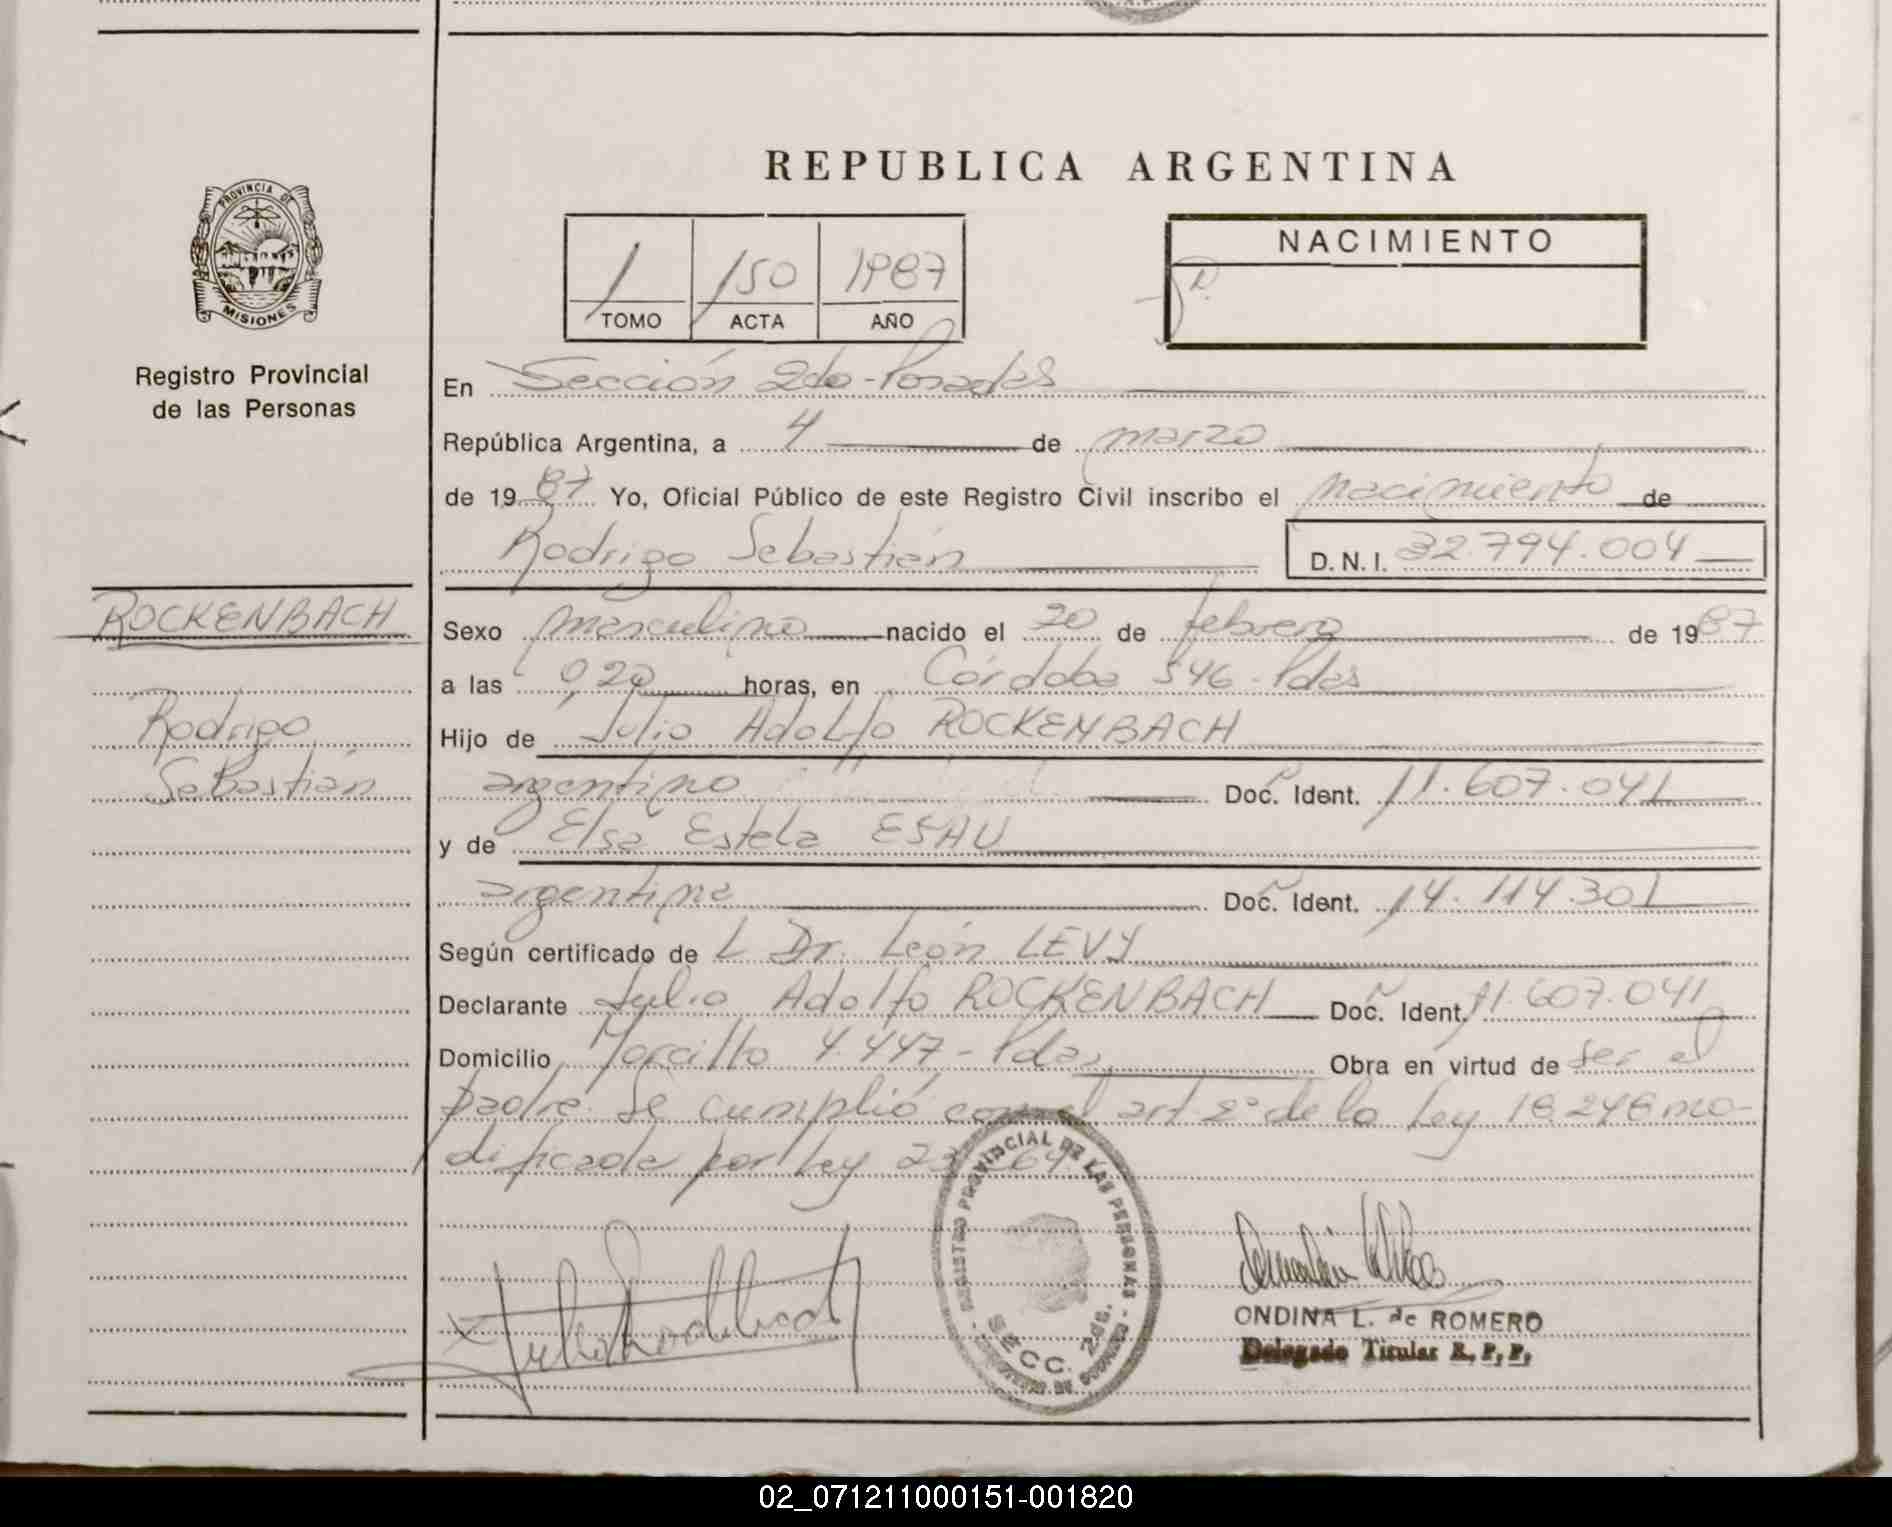 REPUBLICA ARGENTINA
PROVINCIA DE
MISIONES
Registro Provincial
de las Personas
1 150 1987
TOMO ACTA AÑO
NACIMIENTO
En Sección 2da-Posadas
República Argentina, a 4 de marzo
de 1987 Yo, Oficial Público de este Registro Civil inscribo el nacimiento de
Rodrigo Sebastián D.N.I. 32.794.004
ROCKENBACH
Rodrigo
Sebastián
Sexo masculino nacido el 20 de febrero de 1987
a las 0,20 horas, en Córdoba 546-Pdas
Hijo de Julio Adolfo ROCKENBACH
argentino Doc. Ident. 11.607.041
y de Elsa Estela ESAU
argentina Doc. Ident. 14.114.301
Según certificado de L Dr. León LEVY
Declarante Julio Adolfo ROCKENBACH Doc. Ident. 11.607.041
Domicilio 4.447-Pdas Obra en virtud de ser el
padre. Se cumplió con el art 2º de la Ley 18.248 mo-
dificada por Ley 23.264
REGISTRO PROVINCIAL DE LAS PERSONAS
SECC. 2da.
ONDINA L. de ROMERO
Delegado Titular R. P. P.
02_071211000151-001820